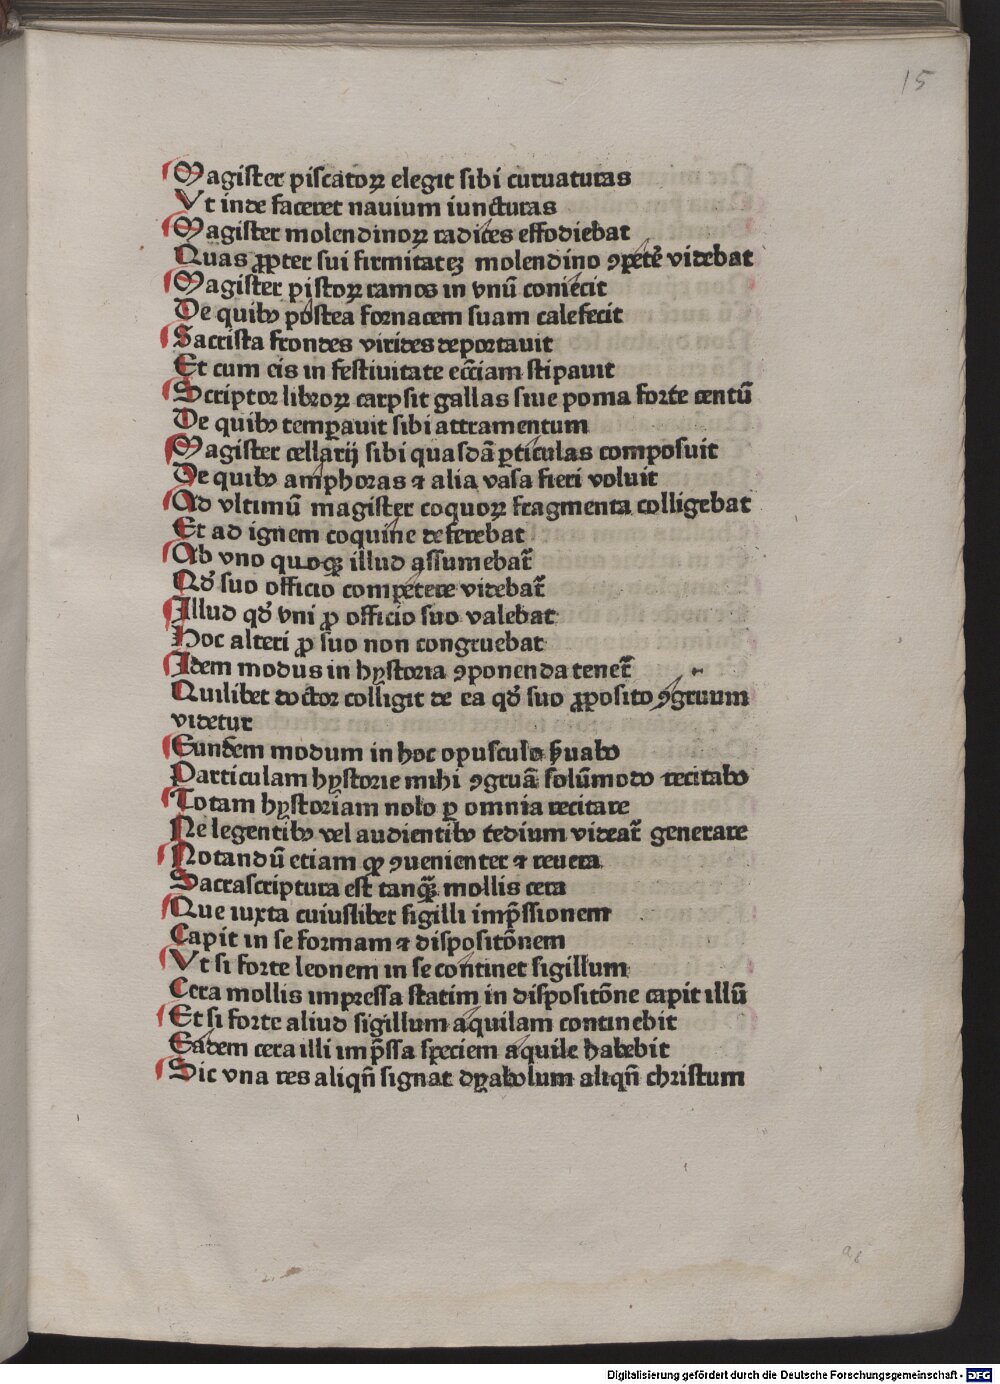 15
Magister piscatoꝝ elegit sibi curuaturas
Vt inde faceret nauium iuncturas
Magister molendinoꝝ radices effodiebat
Quas ꝓpter sui firmitatē molendino ꝯpetē videbat
Magister pistoꝝ ramos in vnū coniecit
De quibꝰ postea fornacem suam calefecit
Sacrista frondes virides deportauit
Et cum eis in festiuitate ecc̄iam stipauit
Scriptor libroꝝ carpsit gallas siue poma forte centū
De quibꝰ temꝑauit sibi attramentum
Magister cellarij sibi quasdā ꝑticulas composuit
De quibꝰ amphoras ⁊ alia vasa fieri voluit
Ad vltimū magister coquoꝝ fragmenta colligebat
Et ad ignem coquine deferebat
Ab vno quoqꝫ illud assumebat᷑
Qd̛ suo officio competere videbat᷑
Illud qd̛ vni ꝓ officio suo valebat
Hoc alteri ꝓ suo non congruebat
Idem modus in hystoria ꝯponenda tenet᷑
Quilibet doctor colligit de ea qd̛ suo ꝓposito ꝯgruum
videtur
Eundem modum in hoc opusculo ẜuabo
Particulam hystorie mihi ꝯgruā solūmodo recitabo
Totam hystoriam nolo ꝑ omnia recitare
Ne legentibꝰ vel audientibꝰ tedium videat᷑ generare
Notandū etiam ꝙ ꝯuenienter ⁊ reuera
Sacrascriptura est tanqꝫ̄ mollis cera
Que iuxta cuiuslibet sigilli imp̄ssionem
Capit in se formam ⁊ dispositōnem
Vt si forte leonem in se continet sigillum
Cera mollis impressa statim in dispositōne capit illū
Et si forte aliud sigillum aquilam continebit
Eadem cera illi imp̄ssa speciem aquile habebit
Sic vna res aliqn̄ signat dyabolum aliqn̄ christum
a8
Digitalisierung gefördert durch die Deutsche Forschungsgemeinschaft - DFG